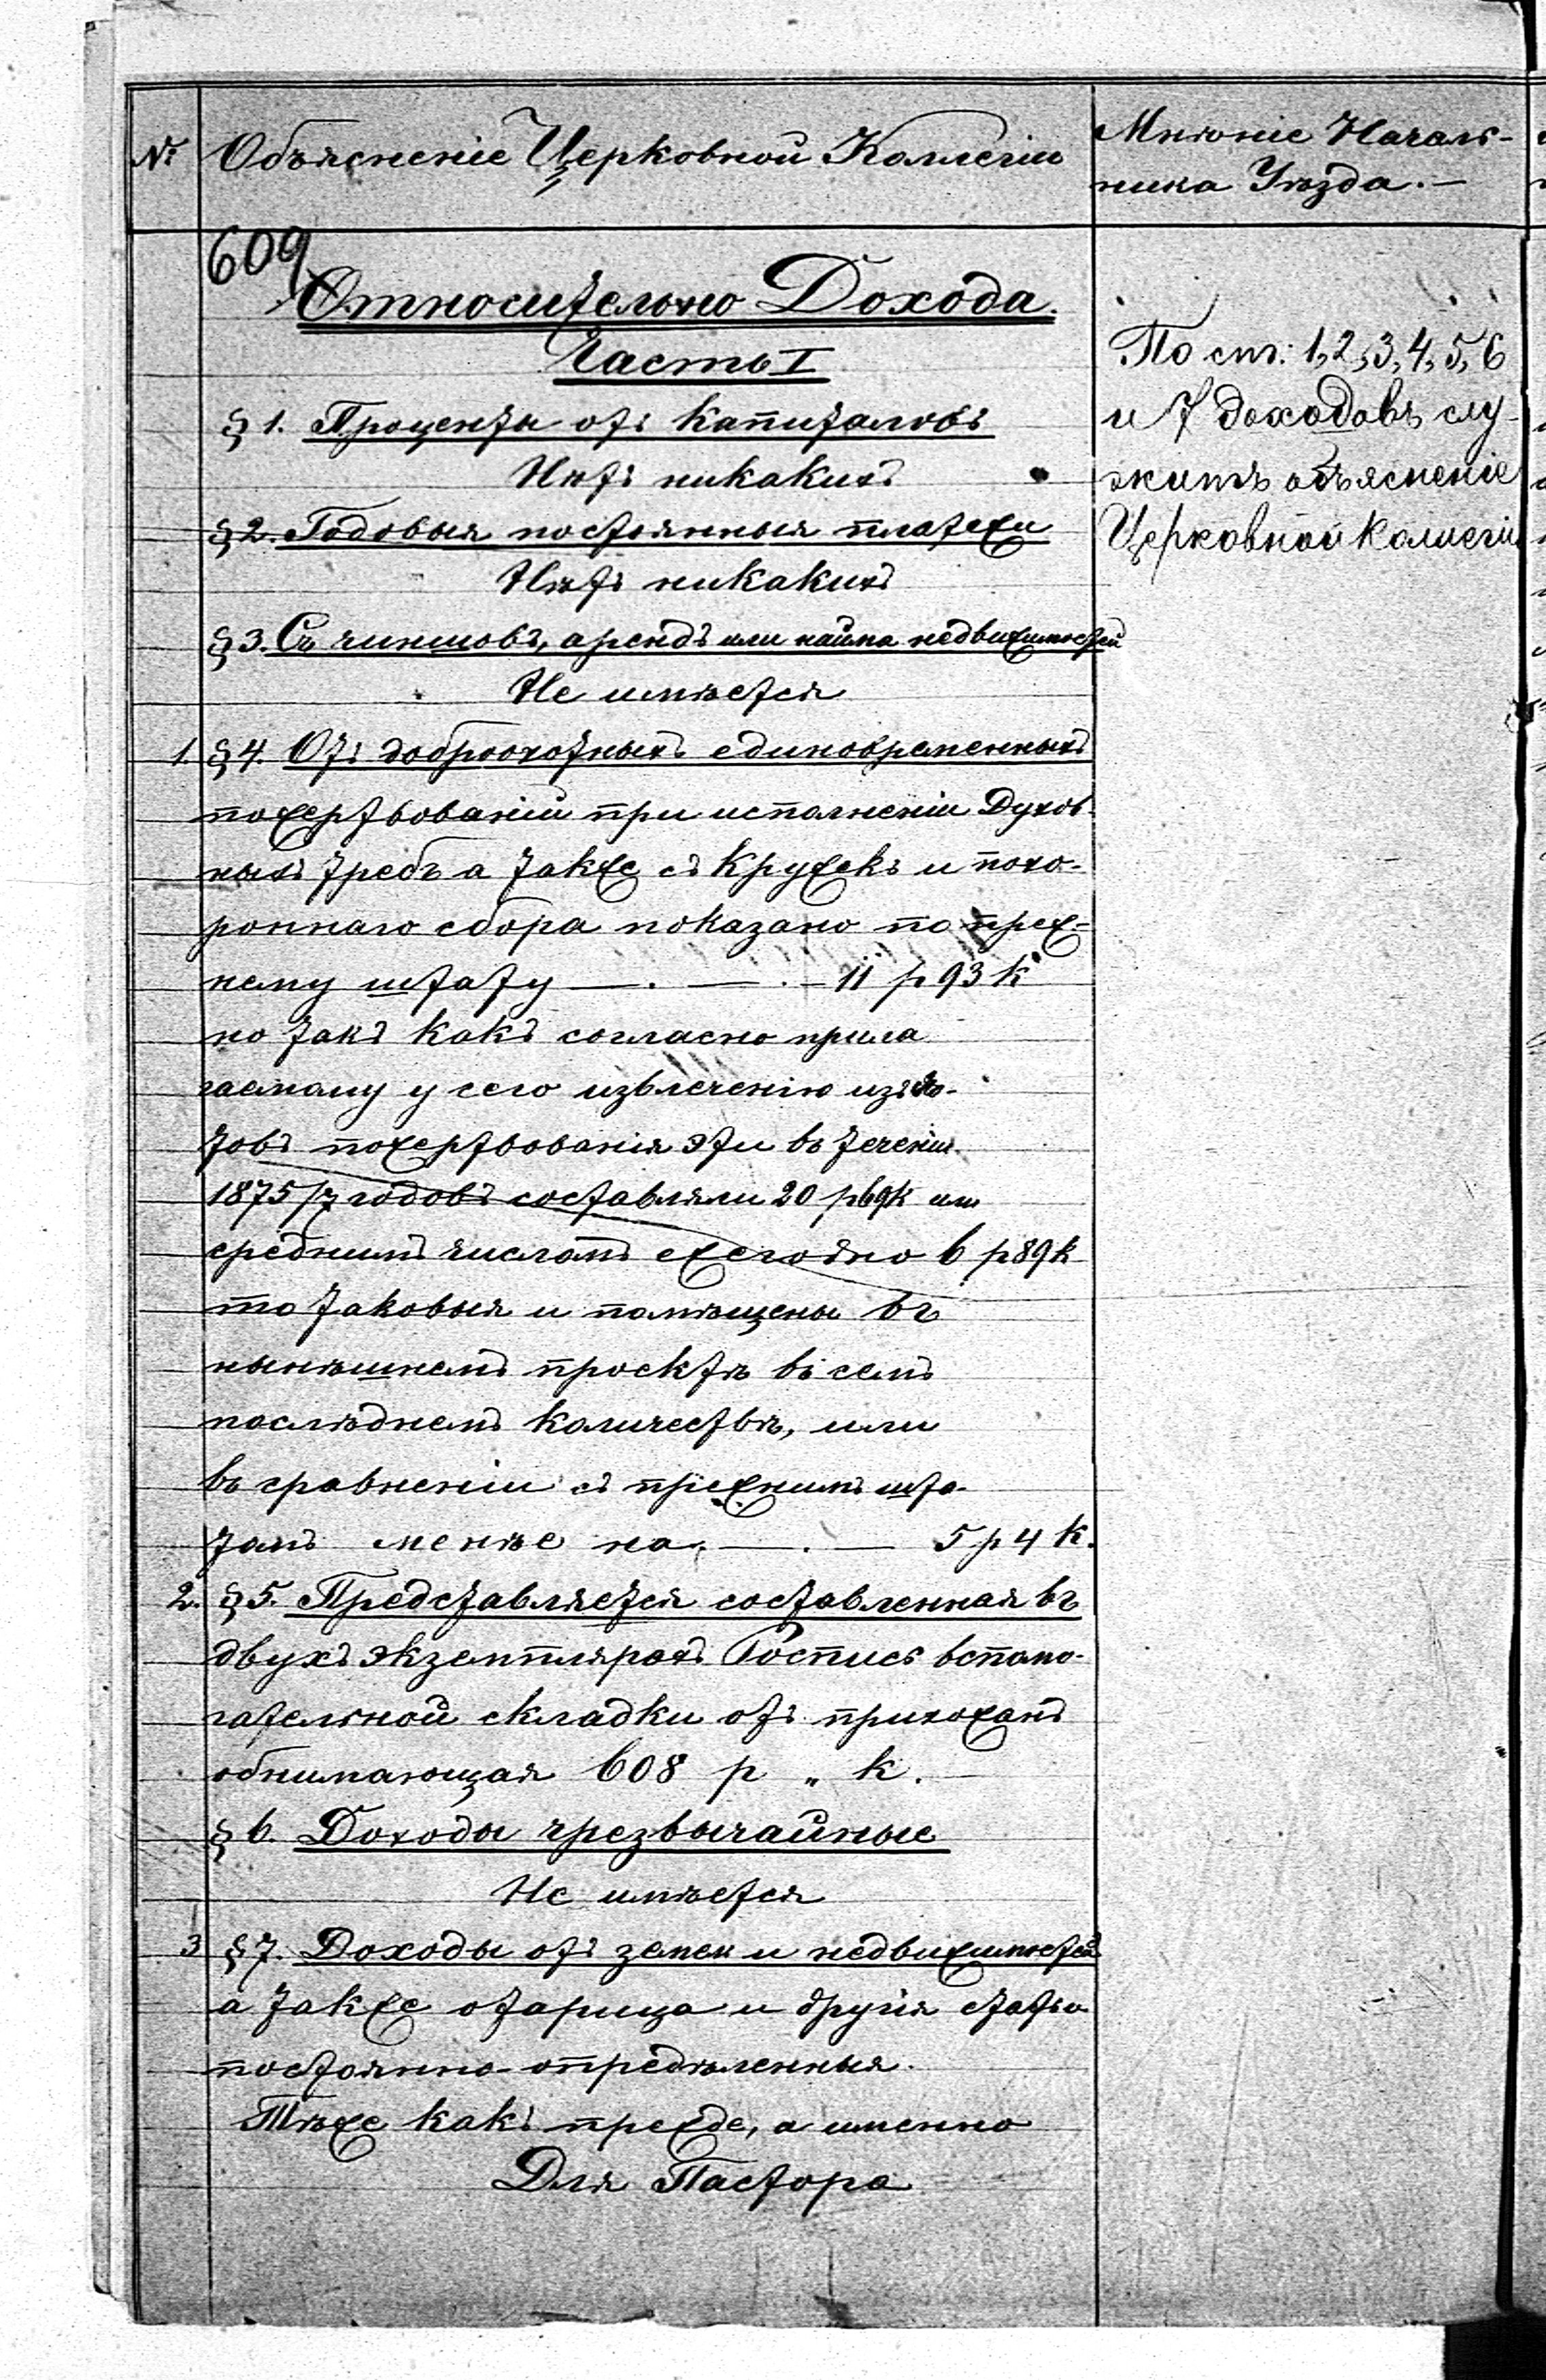 №
Объясненіе Церковной Коллегіи
Мнѣніе Началь-
ника Уѣзда.—
609
Относительно Дохода.
Часть I
§ 1. Проценты отъ капиталовъ
Нѣтъ никакихъ
§ 2. Годовыя постоянныя платежи
Нѣтъ никакихъ
§ 3. Съ чиншовъ, арендъ или найма недвижимостей
Не имѣется
1. § 4. Отъ доброохотныхъ единовременныхъ
пожертвованій при исполненіи Духов-
ныхъ требъ а также съ кружекъ и похо-
роннаго сбора показано по преж-
нему штату —.—.— 11 р 93 к
но такъ какъ согласно прила
гаемому у сего извлеченію изъ
товъ пожертвованія эти въ теченіи
1875/7 годовъ составляли 20 р 69 к или
среднимъ числомъ ежегодно 6 р 89 к
то таковыя и помѣщены въ
нынѣшнемъ проектѣ въ семъ
послѣднемъ количествѣ, или
въ сравненіи съ прежнимъ шта-
томъ менѣе на —.— 5 р 4 к.
2. § 5. Представляется составленная въ
двухъ экземплярахъ Роспись вспомо-
гательной складки отъ прихожанъ
обнимающая 608 р „ к.
§ 6. Доходы чрезвычайные
Не имѣется
3 § 7. Доходы отъ земли и недвижимостей
а также отарица и другія статьи
постоянно-опредѣленныя.
Тѣже какъ прежде, а именно
Для Пастора
По ст: 1, 2, 3, 4, 5, 6
и 7 доходовъ слу-
житъ объясненіе
Церковной Коллегіи